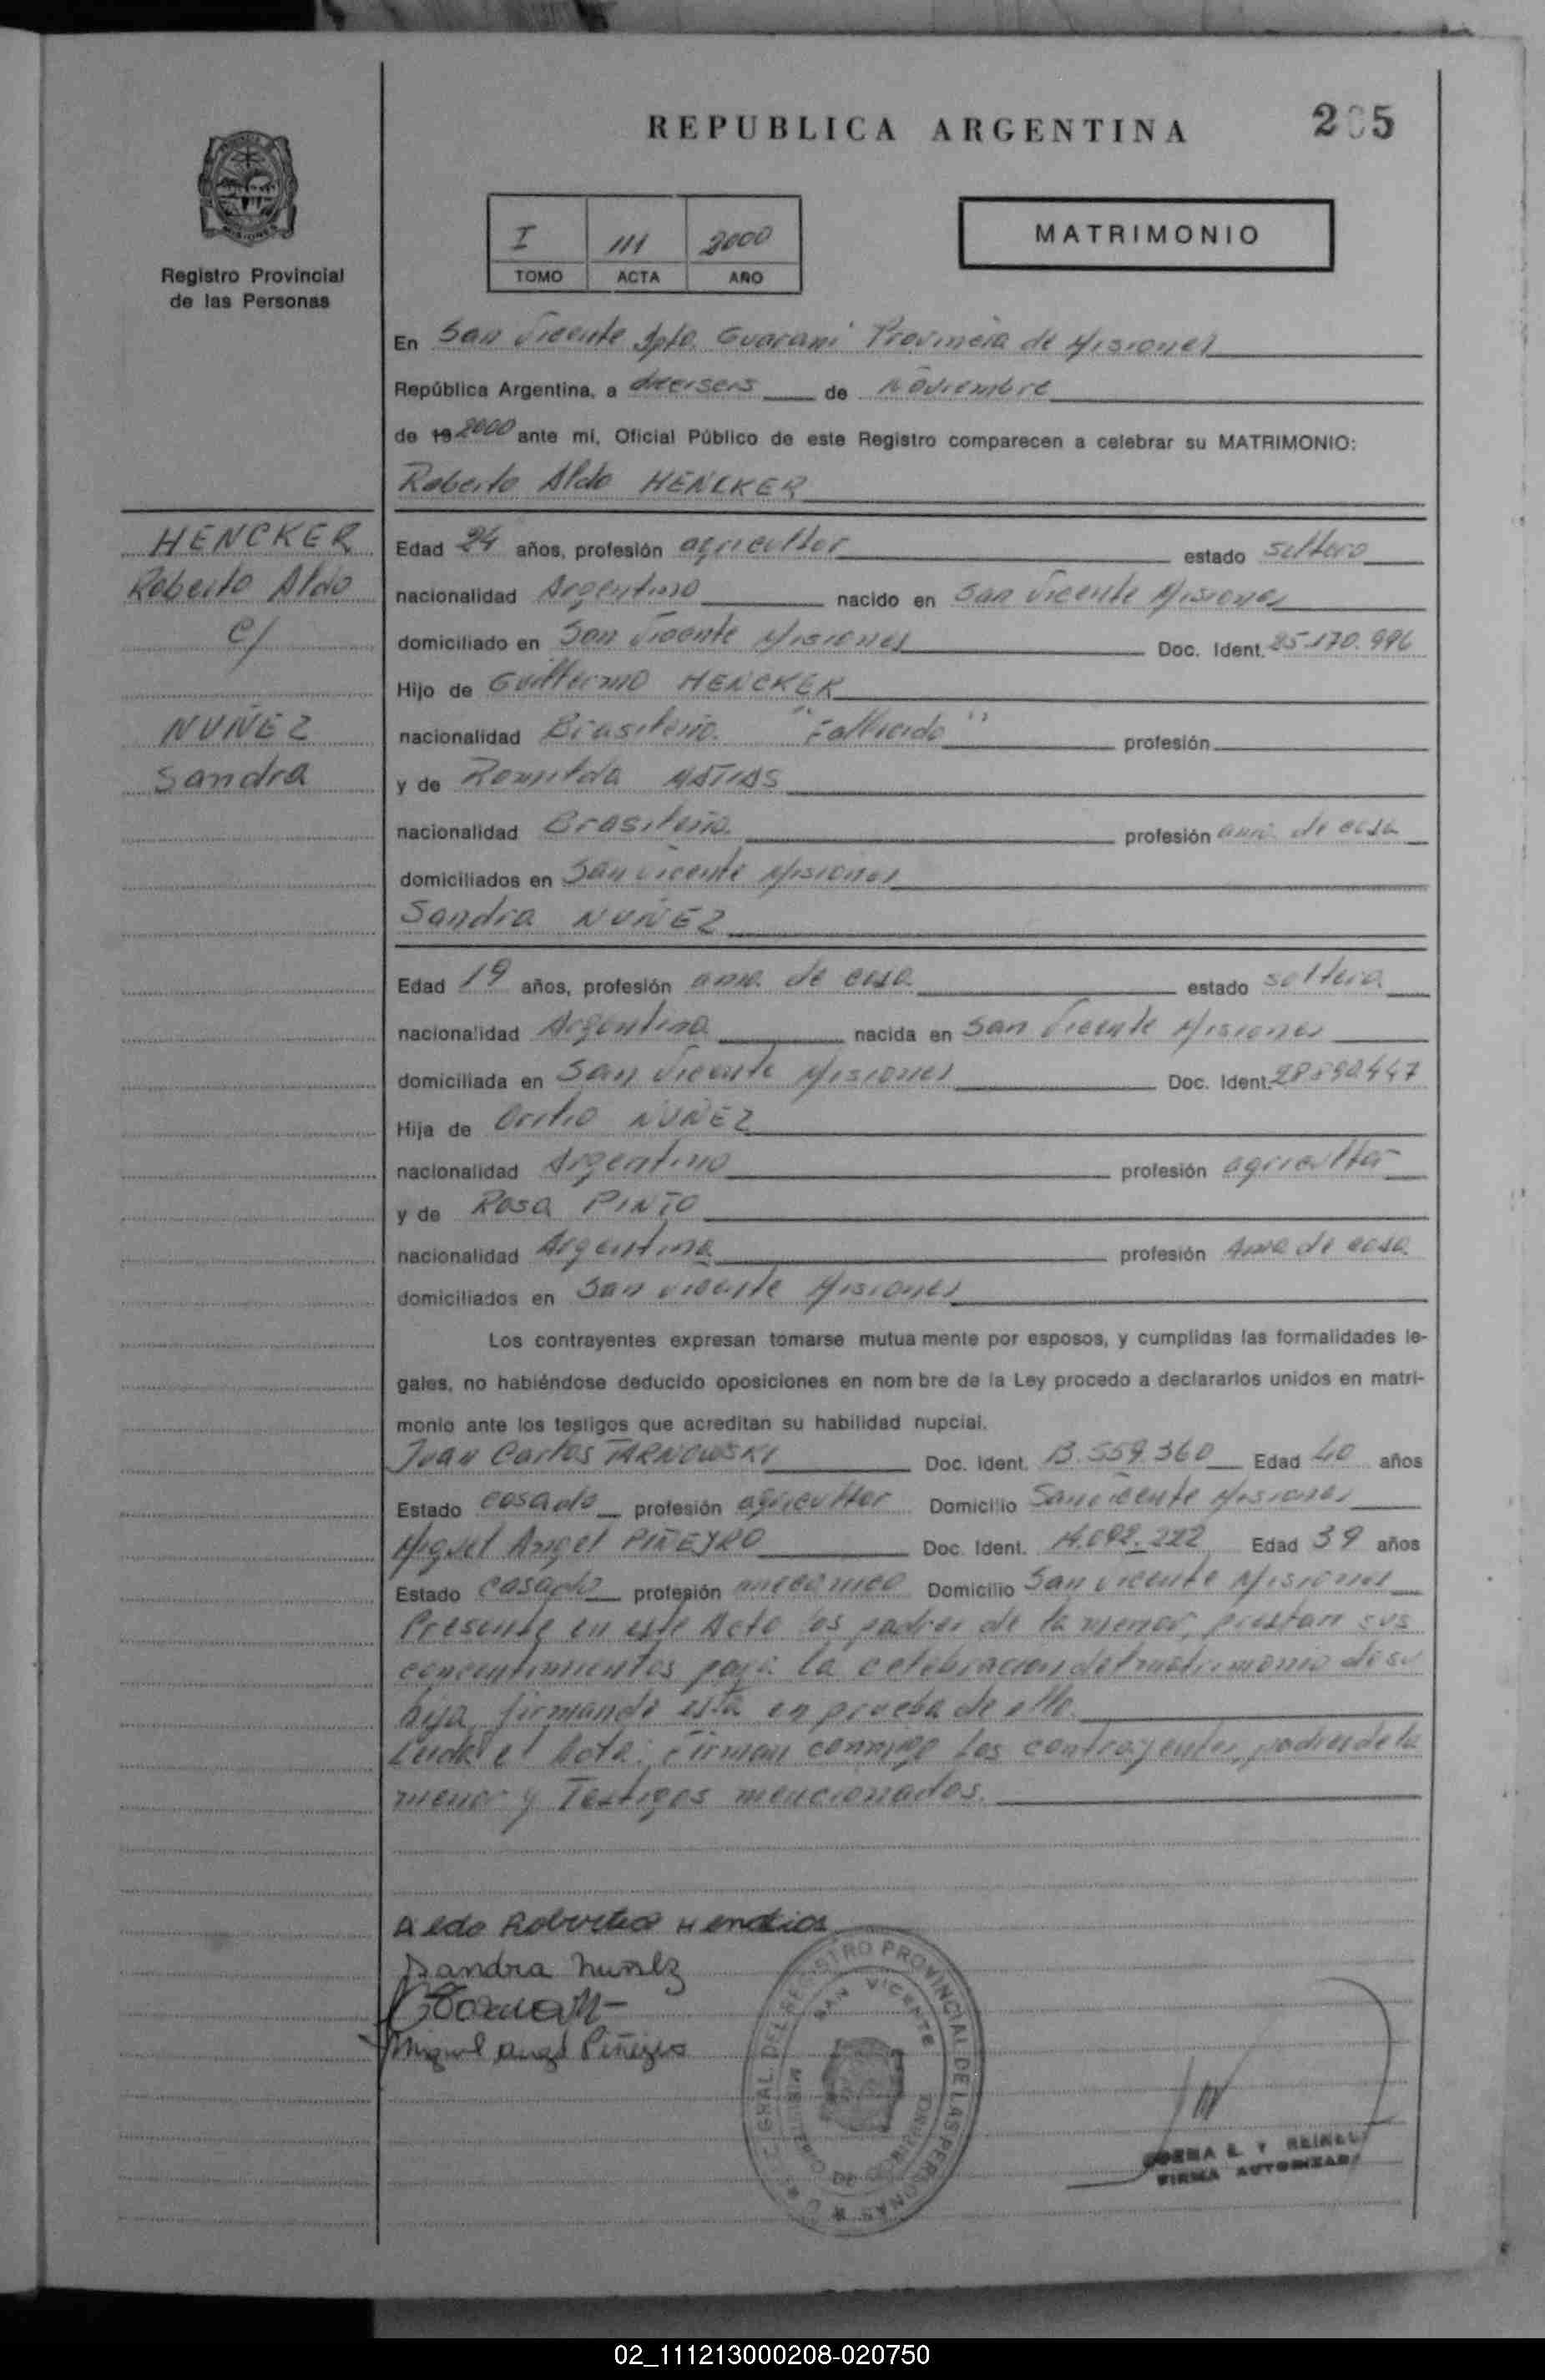 REPUBLICA ARGENTINA
265
MISIONES
Registro Provincial
de las Personas
I 111 2000
TOMO ACTA AÑO
MATRIMONIO
En San Vicente Dpto. Guarani Provincia de Misiones
República Argentina, a dieciseis de Noviembre
de 19 2000 ante mi, Oficial Público de este Registro comparecen a celebrar su MATRIMONIO:
Roberto Aldo HENCKER
HENCKER
Roberto Aldo
c/
NUÑEZ
Sandra
Edad 24 años, profesión agricultor estado soltero
nacionalidad Argentino nacido en San Vicente Misiones
domiciliado en San Vicente Misiones Doc. Ident. 25.170.996
Hijo de Guillermo HENCKER
nacionalidad Brasileño. "Fallecido" profesión
y de Romilda MATIAS
nacionalidad Brasileña. profesión ama de casa
domiciliados en San Vicente Misiones
Sandra NUÑEZ
Edad 19 años, profesión ama de casa estado soltera
nacionalidad Argentina nacida en San Vicente Misiones
domiciliada en San Vicente Misiones Doc. Ident.
Hija de NUÑEZ
nacionalidad Argentino profesión agricultor
y de Rosa PINTO
nacionalidad Argentina profesión Ama de casa
domiciliados en San Vicente Misiones
Los contrayentes expresan tomarse mutua mente por esposos, y cumplidas las formalidades le-
gales, no habiéndose deducido oposiciones en nom bre de la Ley procedo a declararlos unidos en matri-
monio ante los testigos que acreditan su habilidad nupcial.
Juan Carlos TARNOWSKI Doc. Ident. 13.559.360 Edad 40 años
Estado casado profesión agricultor Domicilio San Vicente Misiones
Miguel Angel PIÑEYRO Doc. Ident. 14.092.222 Edad 39 años
Estado casado profesión mecanico Domicilio San Vicente Misiones
Presente en este Acto los padres de la menor, prestan sus
concentimientos para la celebracion del matrimonio de su
hija, firmando esta en prueba de ello.
Leida el Acta; firman conmigo los contrayentes, padres de la
menor y Testigos mencionados.
Aldo Roberto
Sandra Nuñez
Miguel Angel Piñeyro
GRAL. DEL REGISTRO PROVINCIAL DE LAS PERSONAS
SAN VICENTE
MINISTERIO DE GOBIERNO
FIRMA AUTORIZADA
02_111213000208-020750